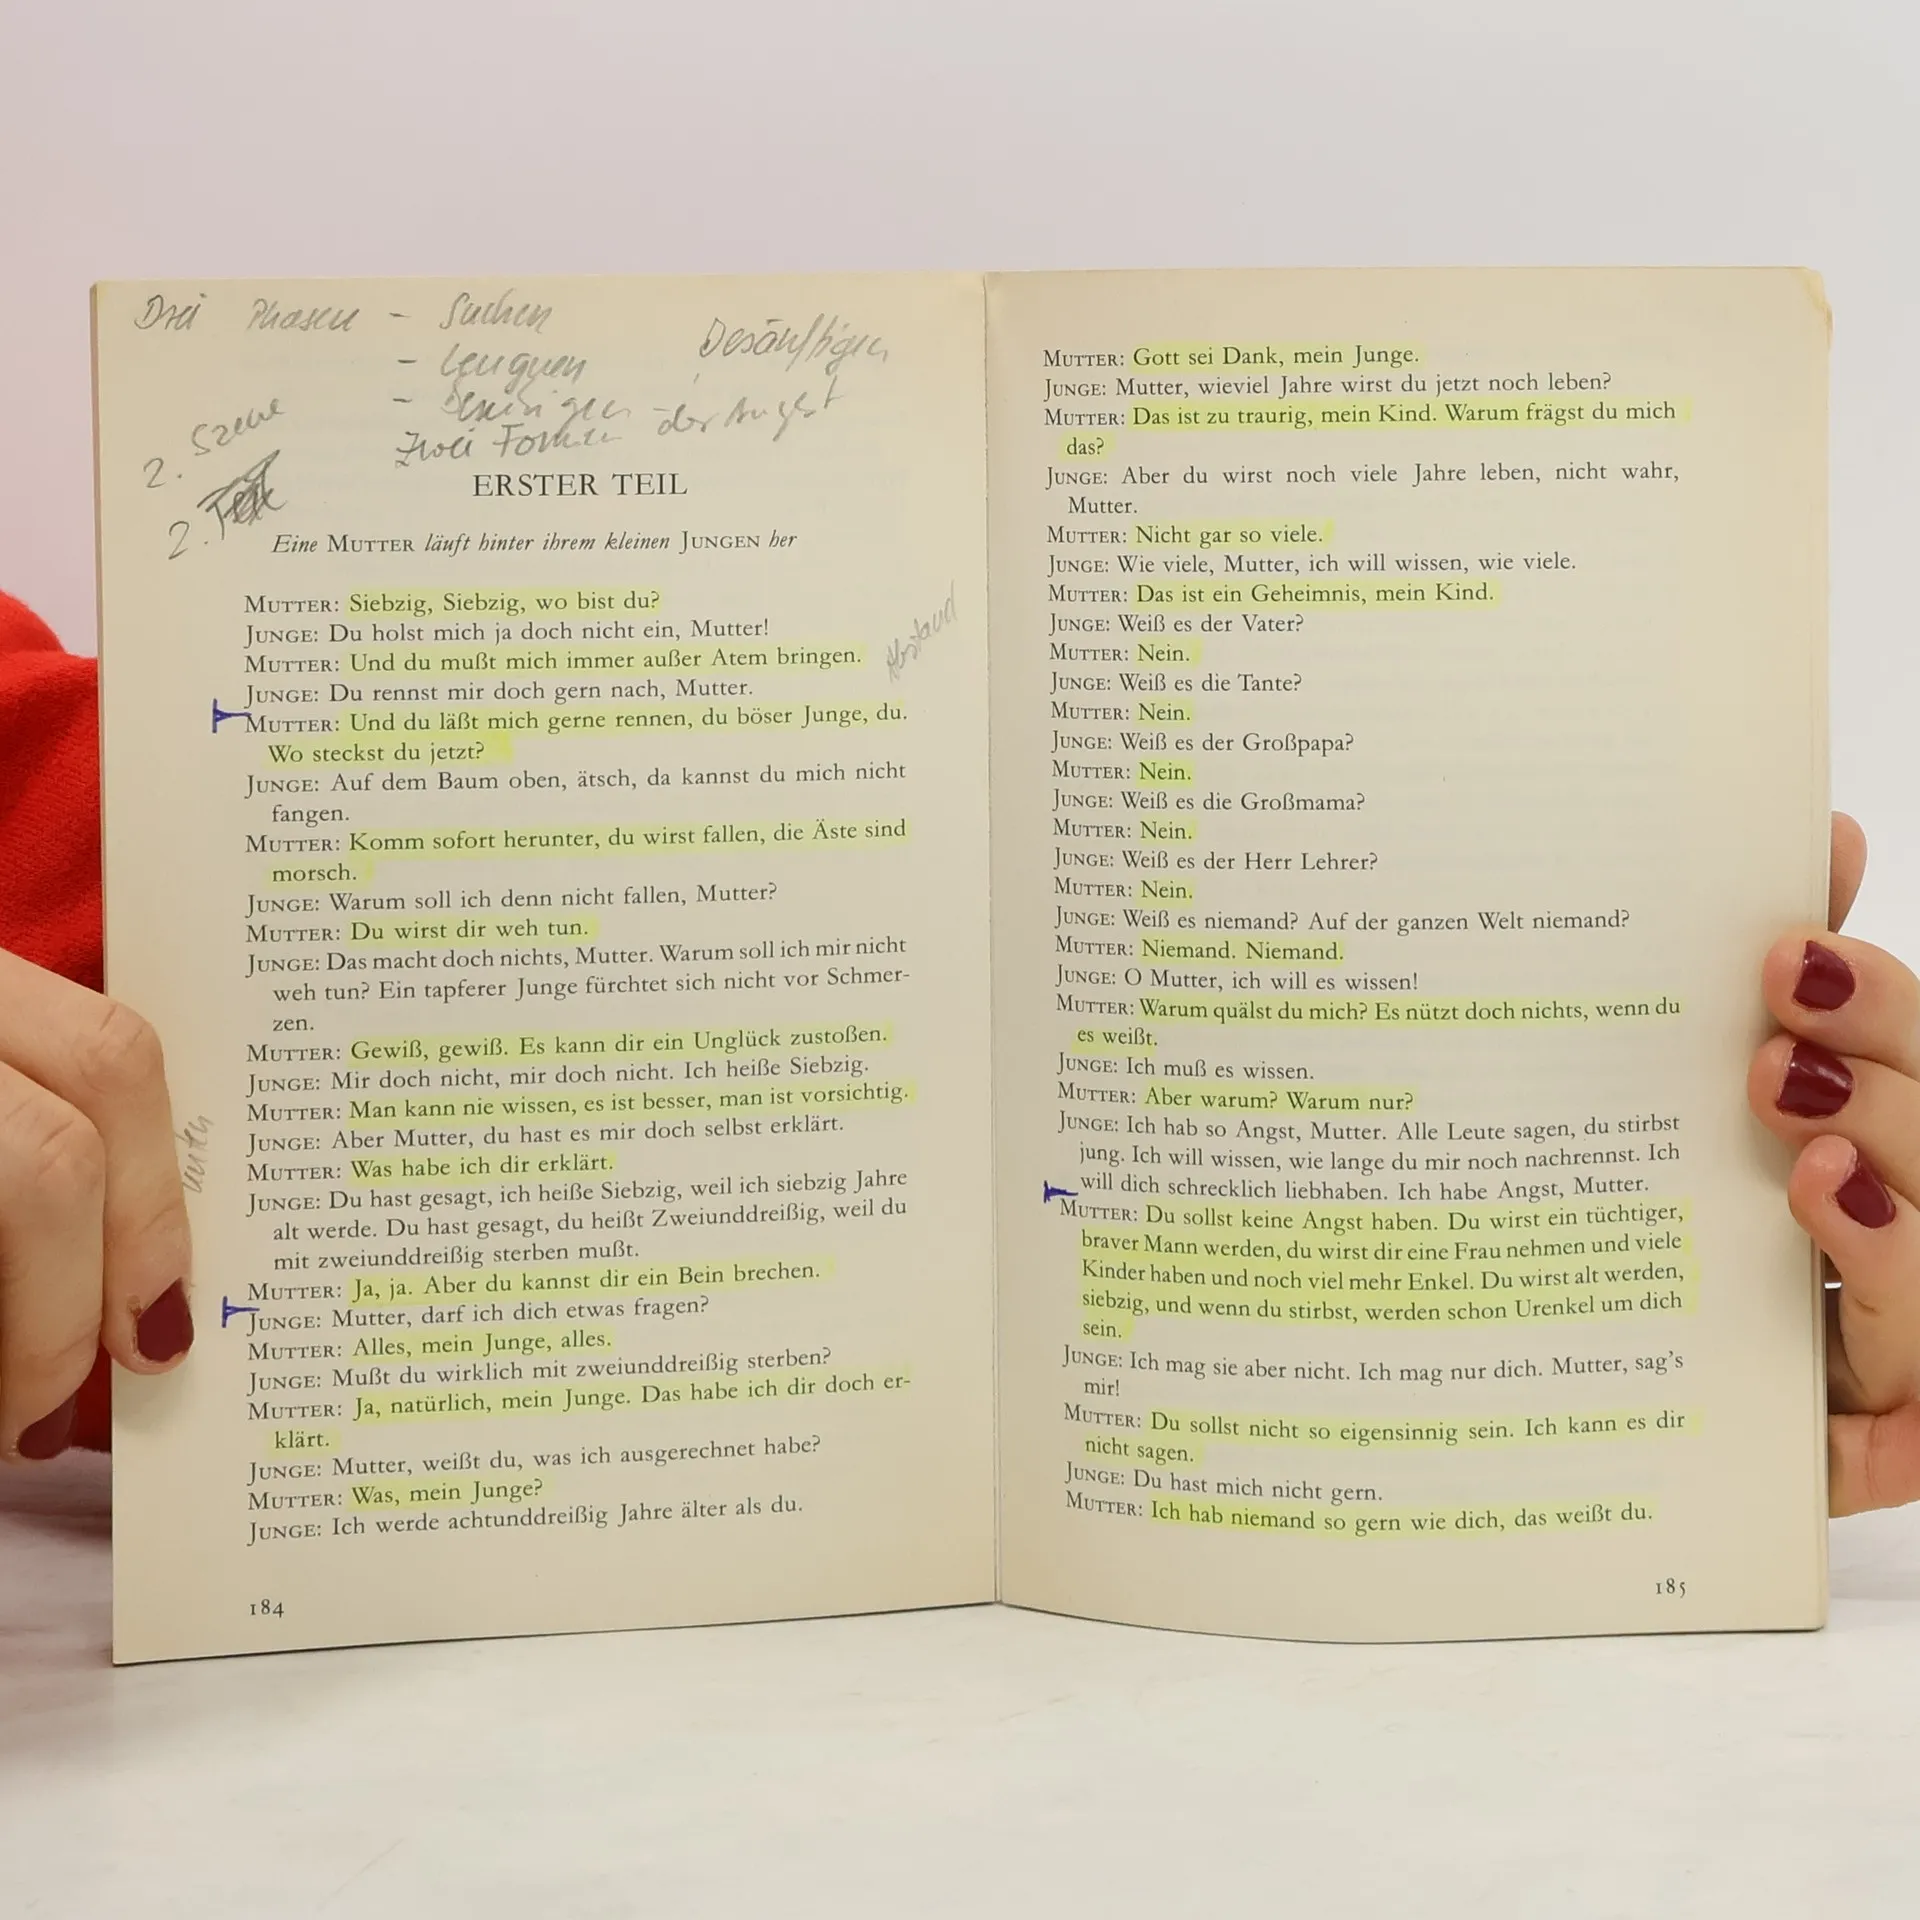 Drei Phasen - Suchen
- Leugnen Besänftigen
-
Zwei Formen der Angst
2. Szene
2.
ERSTER TEIL
Eine MUTTER läuft hinter ihrem kleinen JUNGEN her
MUTTER: Siebzig, Siebzig, wo bist du?
JUNGE: Du holst mich ja doch nicht ein, Mutter!
MUTTER: Und du mußt mich immer außer Atem bringen.
Abstand
JUNGE: Du rennst mir doch gern nach, Mutter.
MUTTER: Und du läßt mich gerne rennen, du böser Junge, du.
Wo steckst du jetzt?
JUNGE: Auf dem Baum oben, ätsch, da kannst du mich nicht
fangen.
MUTTER: Komm sofort herunter, du wirst fallen, die Äste sind
morsch.
JUNGE: Warum soll ich denn nicht fallen, Mutter?
MUTTER: Du wirst dir weh tun.
JUNGE: Das macht doch nichts, Mutter. Warum soll ich mir nicht
weh tun? Ein tapferer Junge fürchtet sich nicht vor Schmer-
zen.
MUTTER: Gewiß, gewiß. Es kann dir ein Unglück zustoßen.
JUNGE: Mir doch nicht, mir doch nicht. Ich heiße Siebzig.
MUTTER: Man kann nie wissen, es ist besser, man ist vorsichtig.
JUNGE: Aber Mutter, du hast es mir doch selbst erklärt.
MUTTER: Was habe ich dir erklärt.
JUNGE: Du hast gesagt, ich heiße Siebzig, weil ich siebzig Jahre
alt werde. Du hast gesagt, du heißt Zweiunddreißig, weil du
mit zweiunddreißig sterben mußt.
MUTTER: Ja, ja. Aber du kannst dir ein Bein brechen.
JUNGE: Mutter, darf ich dich etwas fragen?
MUTTER: Alles, mein Junge, alles.
JUNGE: Mußt du wirklich mit zweiunddreißig sterben?
MUTTER: Ja, natürlich, mein Junge. Das habe ich dir doch er-
klärt.
JUNGE: Mutter, weißt du, was ich ausgerechnet habe?
MUTTER: Was, mein Junge?
JUNGE: Ich werde achtunddreißig Jahre älter als du.
184
MUTTER: Gott sei Dank, mein Junge.
JUNGE: Mutter, wieviel Jahre wirst du jetzt noch leben?
MUTTER: Das ist zu traurig, mein Kind. Warum frägst du mich
das?
JUNGE: Aber du wirst noch viele Jahre leben, nicht wahr,
Mutter.
MUTTER: Nicht gar so viele.
JUNGE: Wie viele, Mutter, ich will wissen, wie viele.
MUTTER: Das ist ein Geheimnis, mein Kind.
JUNGE: Weiß es der Vater?
MUTTER: Nein.
JUNGE: Weiß es die Tante?
MUTTER: Nein.
JUNGE: Weiß es der Großpapa?
MUTTER: Nein.
JUNGE: Weiß es die Großmama?
MUTTER: Nein.
JUNGE: Weiß es der Herr Lehrer?
MUTTER: Nein.
JUNGE: Weiß es niemand? Auf der ganzen Welt niemand?
MUTTER: Niemand. Niemand.
JUNGE: O Mutter, ich will es wissen!
MUTTER: Warum quälst du mich? Es nützt doch nichts, wenn du
es weißt.
JUNGE: Ich muß es wissen.
MUTTER: Aber warum? Warum nur?
JUNGE: Ich hab so Angst, Mutter. Alle Leute sagen, du stirbst
jung. Ich will wissen, wie lange du mir noch nachrennst. Ich
will dich schrecklich liebhaben. Ich habe Angst, Mutter.
MUTTER: Du sollst keine Angst haben. Du wirst ein tüchtiger,
braver Mann werden, du wirst dir eine Frau nehmen und viele
Kinder haben und noch viel mehr Enkel. Du wirst alt werden,
siebzig, und wenn du stirbst, werden schon Urenkel um dich
sein.
JUNGE: Ich mag sie aber nicht. Ich mag nur dich. Mutter, sag's
mir!
MUTTER: Du sollst nicht so eigensinnig sein. Ich kann es dir
nicht sagen.
JUNGE: Du hast mich nicht gern.
MUTTER: Ich hab niemand so gern wie dich, das weißt du.
185